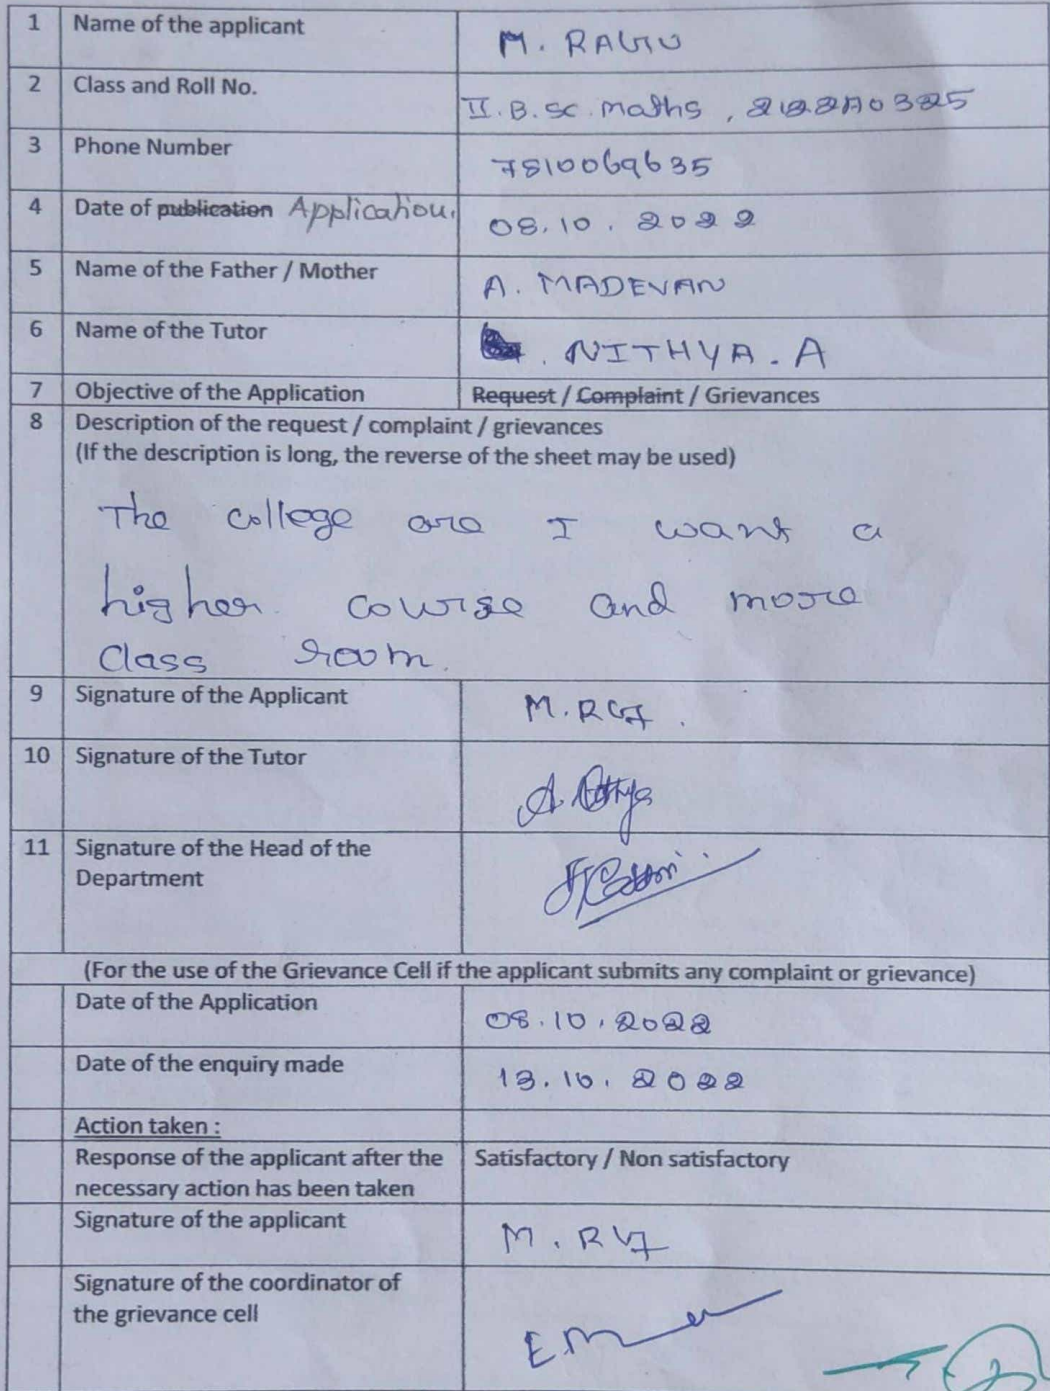 1 Name of the applicant M. RAGU
2 Class and Roll No. II. B. sc. maths , 2122A0325
3 Phone Number 7810069635
4 Date of publication Application. 08.10.2022
5 Name of the Father / Mother A. MADEVAN
6 Name of the Tutor . NITHYA. A
7 Objective of the Application Request / Complaint / Grievances
8 Description of the request / complaint / grievances
(If the description is long, the reverse of the sheet may be used)
The college are I want a
higher course and more
class room.
9 Signature of the Applicant
10 Signature of the Tutor
11 Signature of the Head of the
Department
(For the use of the Grievance Cell if the applicant submits any complaint or grievance)
Date of the Application 08.10.2022
Date of the enquiry made 13.10.2022
Action taken :
Response of the applicant after the Satisfactory / Non satisfactory
necessary action has been taken
Signature of the applicant
Signature of the coordinator of
the grievance cell